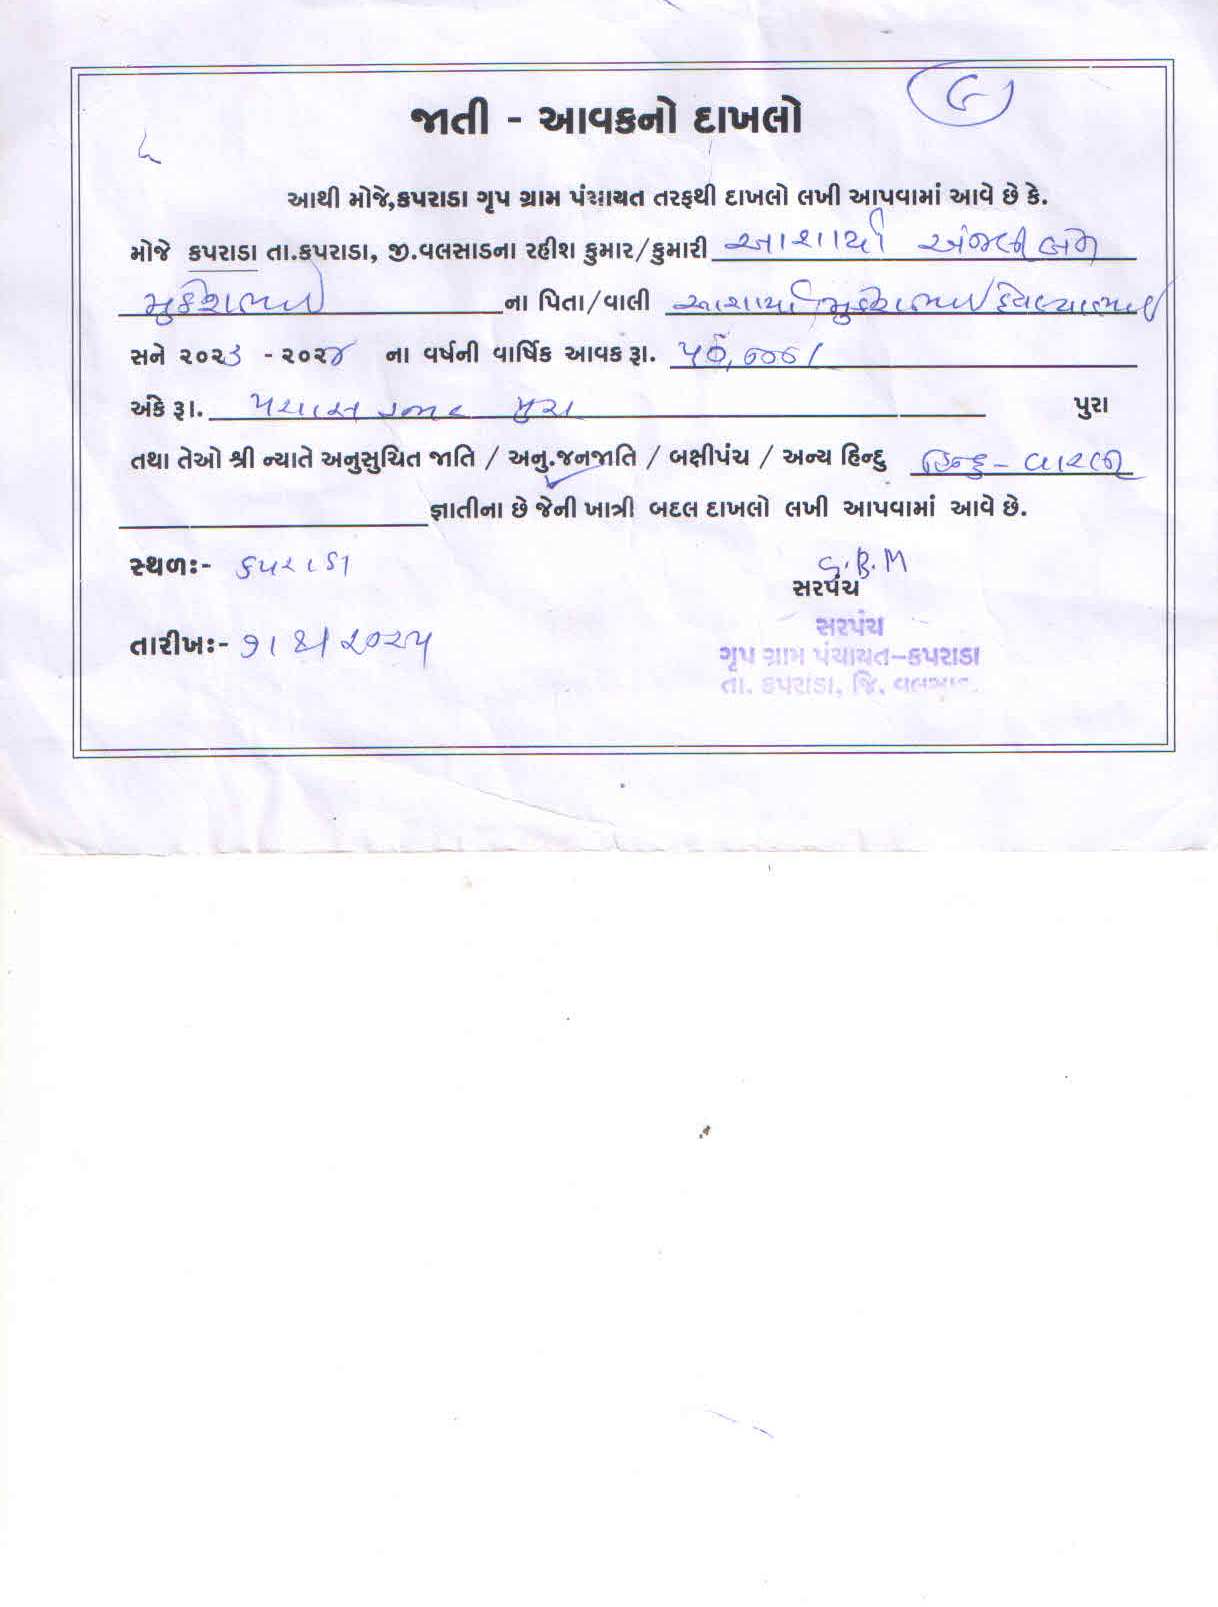 જાતી - આવકનો દાખલો
આથી મોજે,કપરાડા ગૃપ ગ્રામ પંચાયત તરફથી દાખલો લખી આપવામાં આવે છે કે.
મોજે કપરાડા તા.કપરાડા, જી.વલસાડના રહીશ કુમાર/કુમારી આશાર્યા અંજલીબેન
મુકેશભાઈ ના પિતા/વાલી આશાર્યા મુકેશભાઈ
સને ૨૦૨૩ - ૨૦૨૪ ના વર્ષની વાર્ષિક આવક રૂા. ૫૦,૦૦૦/
અંકે રૂા. પચાસ હજાર પુરા પુરા
તથા તેઓ શ્રી ન્યાતે અનુસુચિત જાતિ / અનુ.જનજાતિ / બક્ષીપંચ / અન્ય હિન્દુ હિન્દુ - વારલી
જ્ઞાતીના છે જેની ખાત્રી બદલ દાખલો લખી આપવામાં આવે છે.
સ્થળઃ- કપરાડા
G.B.M
સરપંચ
તારીખઃ- ૧/૪/૨૦૨૫
સરપંચ
ગૃપ ગ્રામ પંચાયત-કપરાડા
તા. કપરાડા, જિ. વલસાડ.